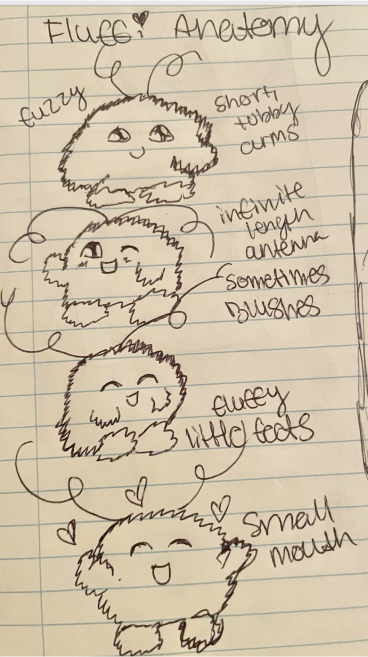 Fluff! Anatomy
fuzzy
short,
tubby
arms
infinite
length
antenna
sometimes
BLUSHES
fluffy
little feets
small
mouth